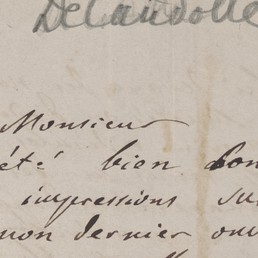 DeCandolle
Monsieur
été bien bon
impressions su
mon dernier ouv